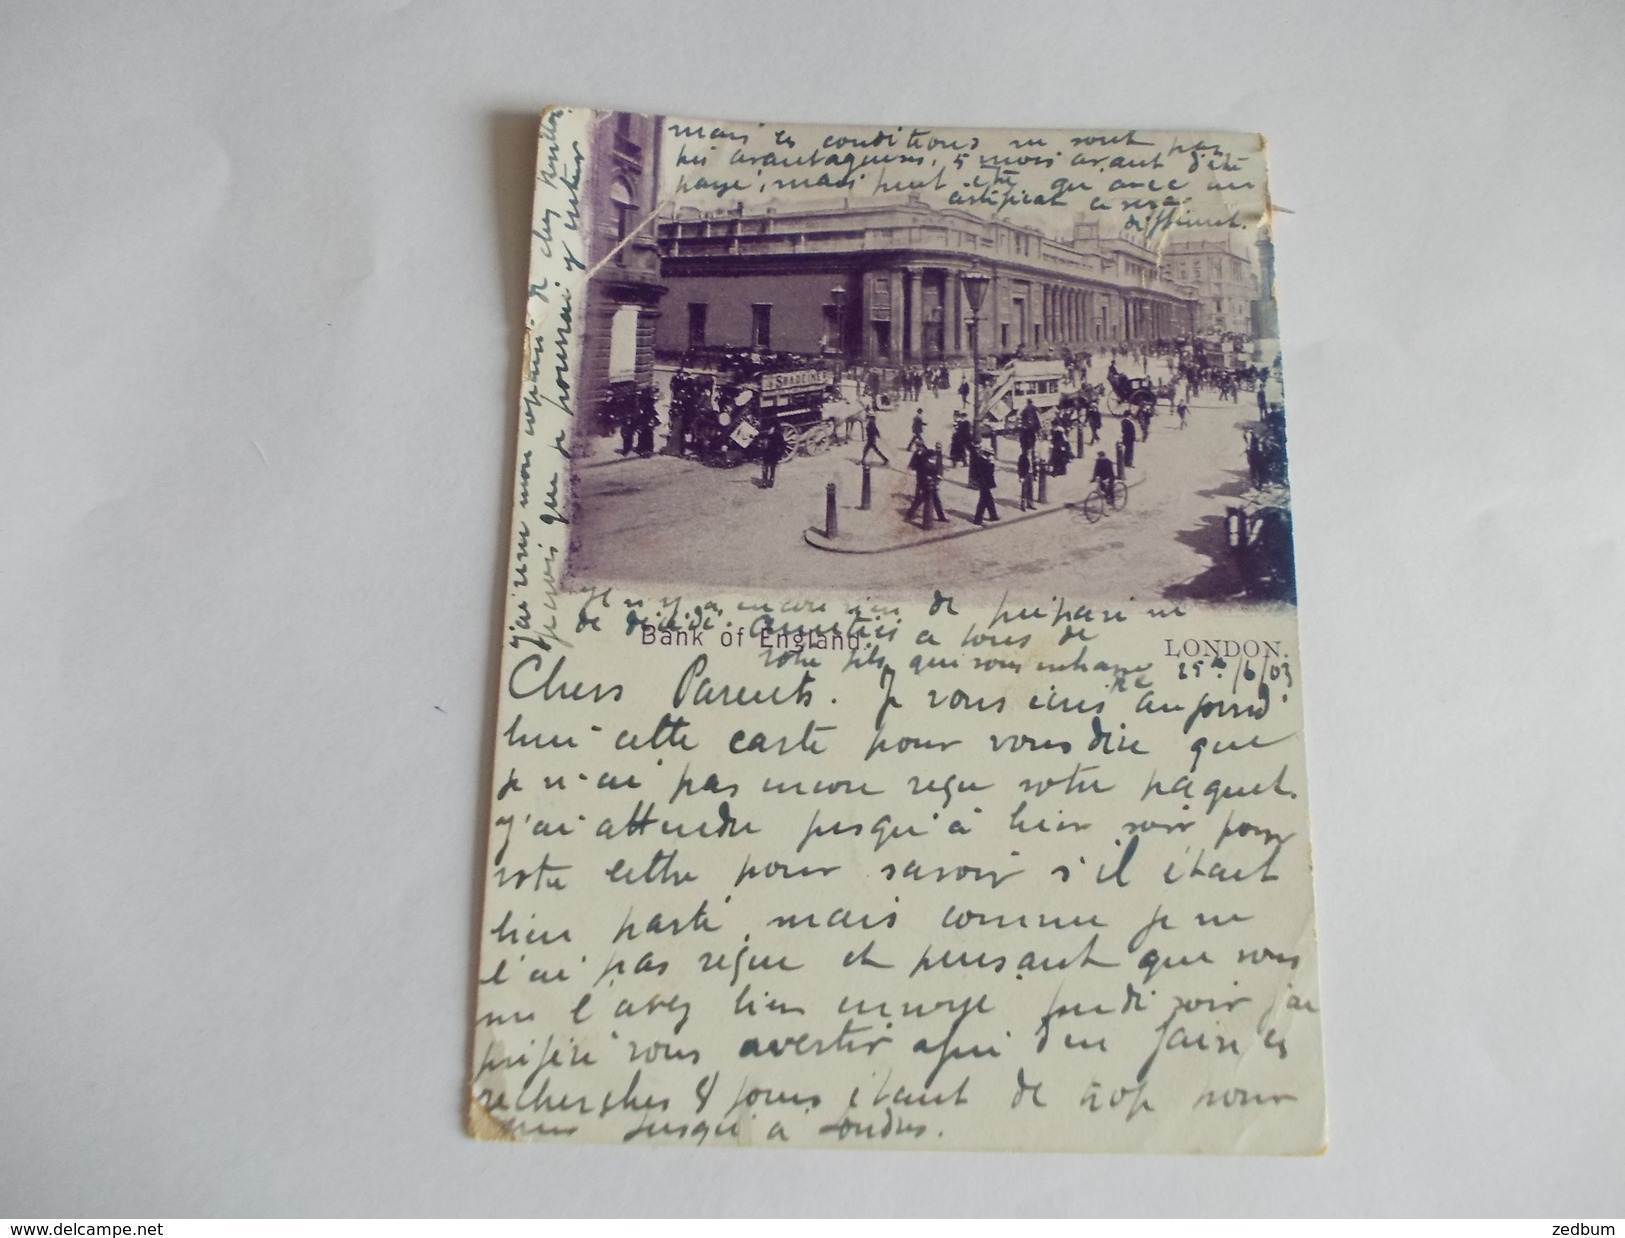 mais les conditions ne sont pas
très avantageuses, 5 mois avant d'été
payé, mais peut être qu'avec un
certificat ce sera
différent.
j'ai revu mon copain de chez
je vois que je pourrai y entrer
SHADEINE
Il n'y a encore rien de préparé ni
de décidé. Amitiés a tous de
votre fils qui vous embrasse
Bank of England.
LONDON.
25 /6/03
Chers Parents. Je vous écris aujourd'
hui cette carte pour vous dire que
je n'ai pas encore reçu votre paquet.
J'ai attendu jusqu'à hier soir pour
votre lettre pour savoir s'il était
bien parti, mais comme je ne
l'ai pas reçue et pensant que vous
me l'avez bien envoyé jeudi soir j'ai
préféré vous avertir afin d'en faire les
recherches 8 jours étant de trop pour
venir jusqu'à Londres.
https://www.delcampe.net
zedbum